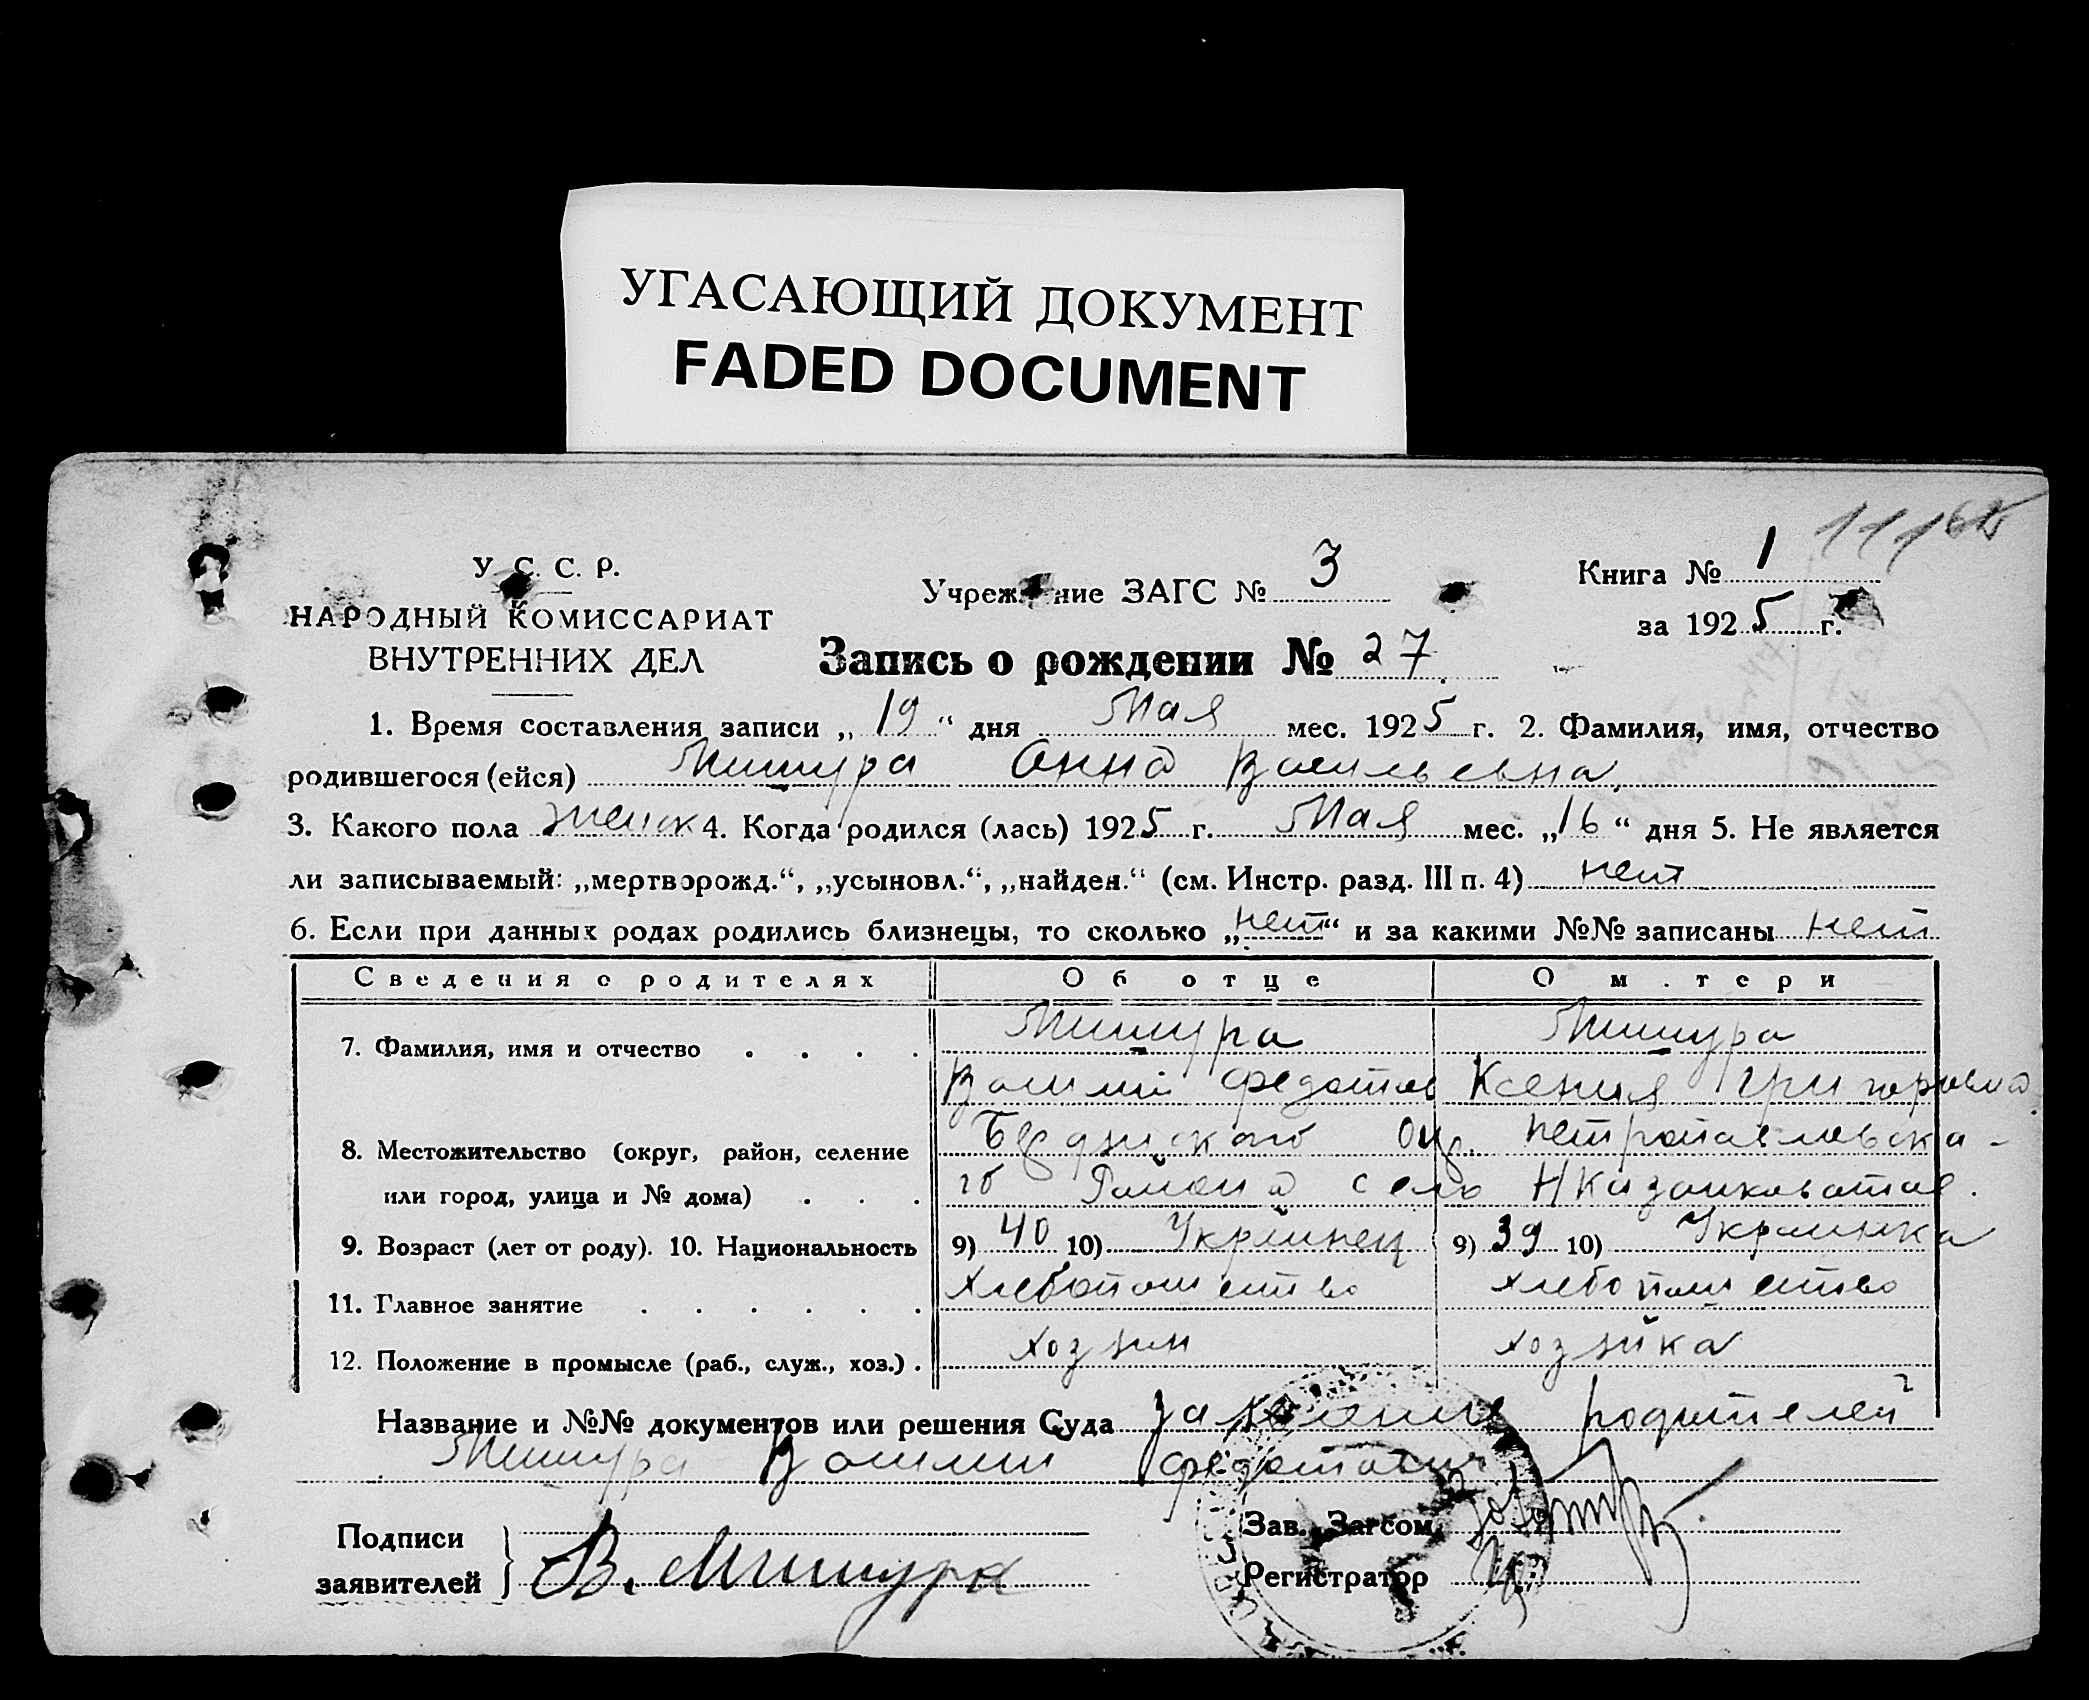 УГАСАЮЩИЙ ДОКУМЕНТ
FADED DOCUMENT
У. С. С. Р.
НАРОДНЫЙ КОМИССАРИАТ
ВНУТРЕННИХ ДЕЛ
Учреждение ЗАГС № 3
Книга № 1
за 1925 г.
Запись о рождении № 27
1. Время составления записи „19“ дня Мая мес. 1925 г. 2. Фамилия, имя, отчество
родившегося (ейся) Мишура Анна Васильевна
3. Какого пола женск 4. Когда родился (лась) 1925 г. Мая мес. „16“ дня 5. Не является
ли записываемый: „мертворожд.“, „усыновл.“, „найден.“ (см. Инстр. разд. III п. 4) нет
6. Если при данных родах родились близнецы, то сколько „нет“ и за какими №№ записаны нет
Сведения о родителях Об отце О м.тери
7. Фамилия, имя и отчество . . . . Мишура Мишура
Василий Федотов Ксения Григоровна
8. Местожительство (округ, район, селение Бердянского Окр. Петропавловска-
или город, улица и № дома) . . . го Района село
9. Возраст (лет от роду). 10. Национальность 9) 40 10) Украинец 9) 39 10) Украинка
11. Главное занятие . . . . . . Хлебопашество хлебопашество
12. Положение в промысле (раб., служ., хоз.) . хозяин хозяйка
Название и №№ документов или решения Суда родителей
Мишура Василий Федотович
Подписи
заявителей
В. Мишура
Зав. Загсом
Регистратор